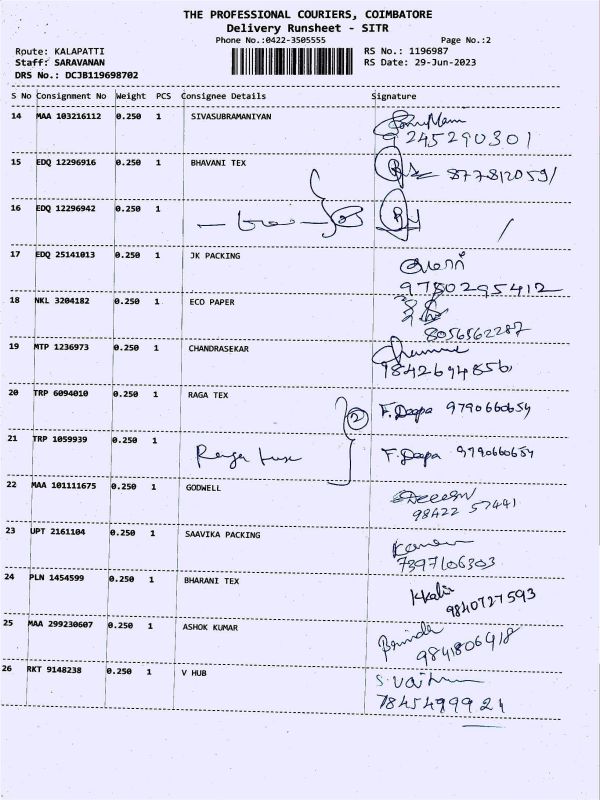 THE PROFESSIONAL COURIERS, COIMBATORE
Delivery Runsheet - SITR
Phone No.:0422-3505555 Page No.:2
Route: KALAPATTI RS No.: 1196987
Staff: SARAVANAN RS Date: 29-Jun-2023
DRS No.: DCJB119698702
S No Consignment No Weight PCS Consignee Details Signature
14 MAA 103216112 0.250 1 SIVASUBRAMANIYAN
9245290301
15 EDQ 12296916 0.250 1 BHAVANI TEX
16 EDQ 12296942 0.250 1
17 EDQ 25141013 0.250 1 JK PACKING
9780295412
18 NKL 3204182 0.250 1 ECO PAPER
8056562287
19 MTP 1236973 0.250 1 CHANDRASEKAR
20 TRP 6094010 0.250 1 RAGA TEX F. Deepa 9790660654
2
21 TRP 1059939 0.250 1 F. Deepa 9790660654
22 MAA 101111675 0.250 1 GODWELL
98422 57441
23 UPT 2161104 0.250 1 SAAVIKA PACKING
7397106303
24 PLN 1454599 0.250 1 BHARANI TEX
9840727593
25 MAA 299230607 0.250 1 ASHOK KUMAR
9841806418
26 RKT 9148238 0.250 1 V HUB
7845499921